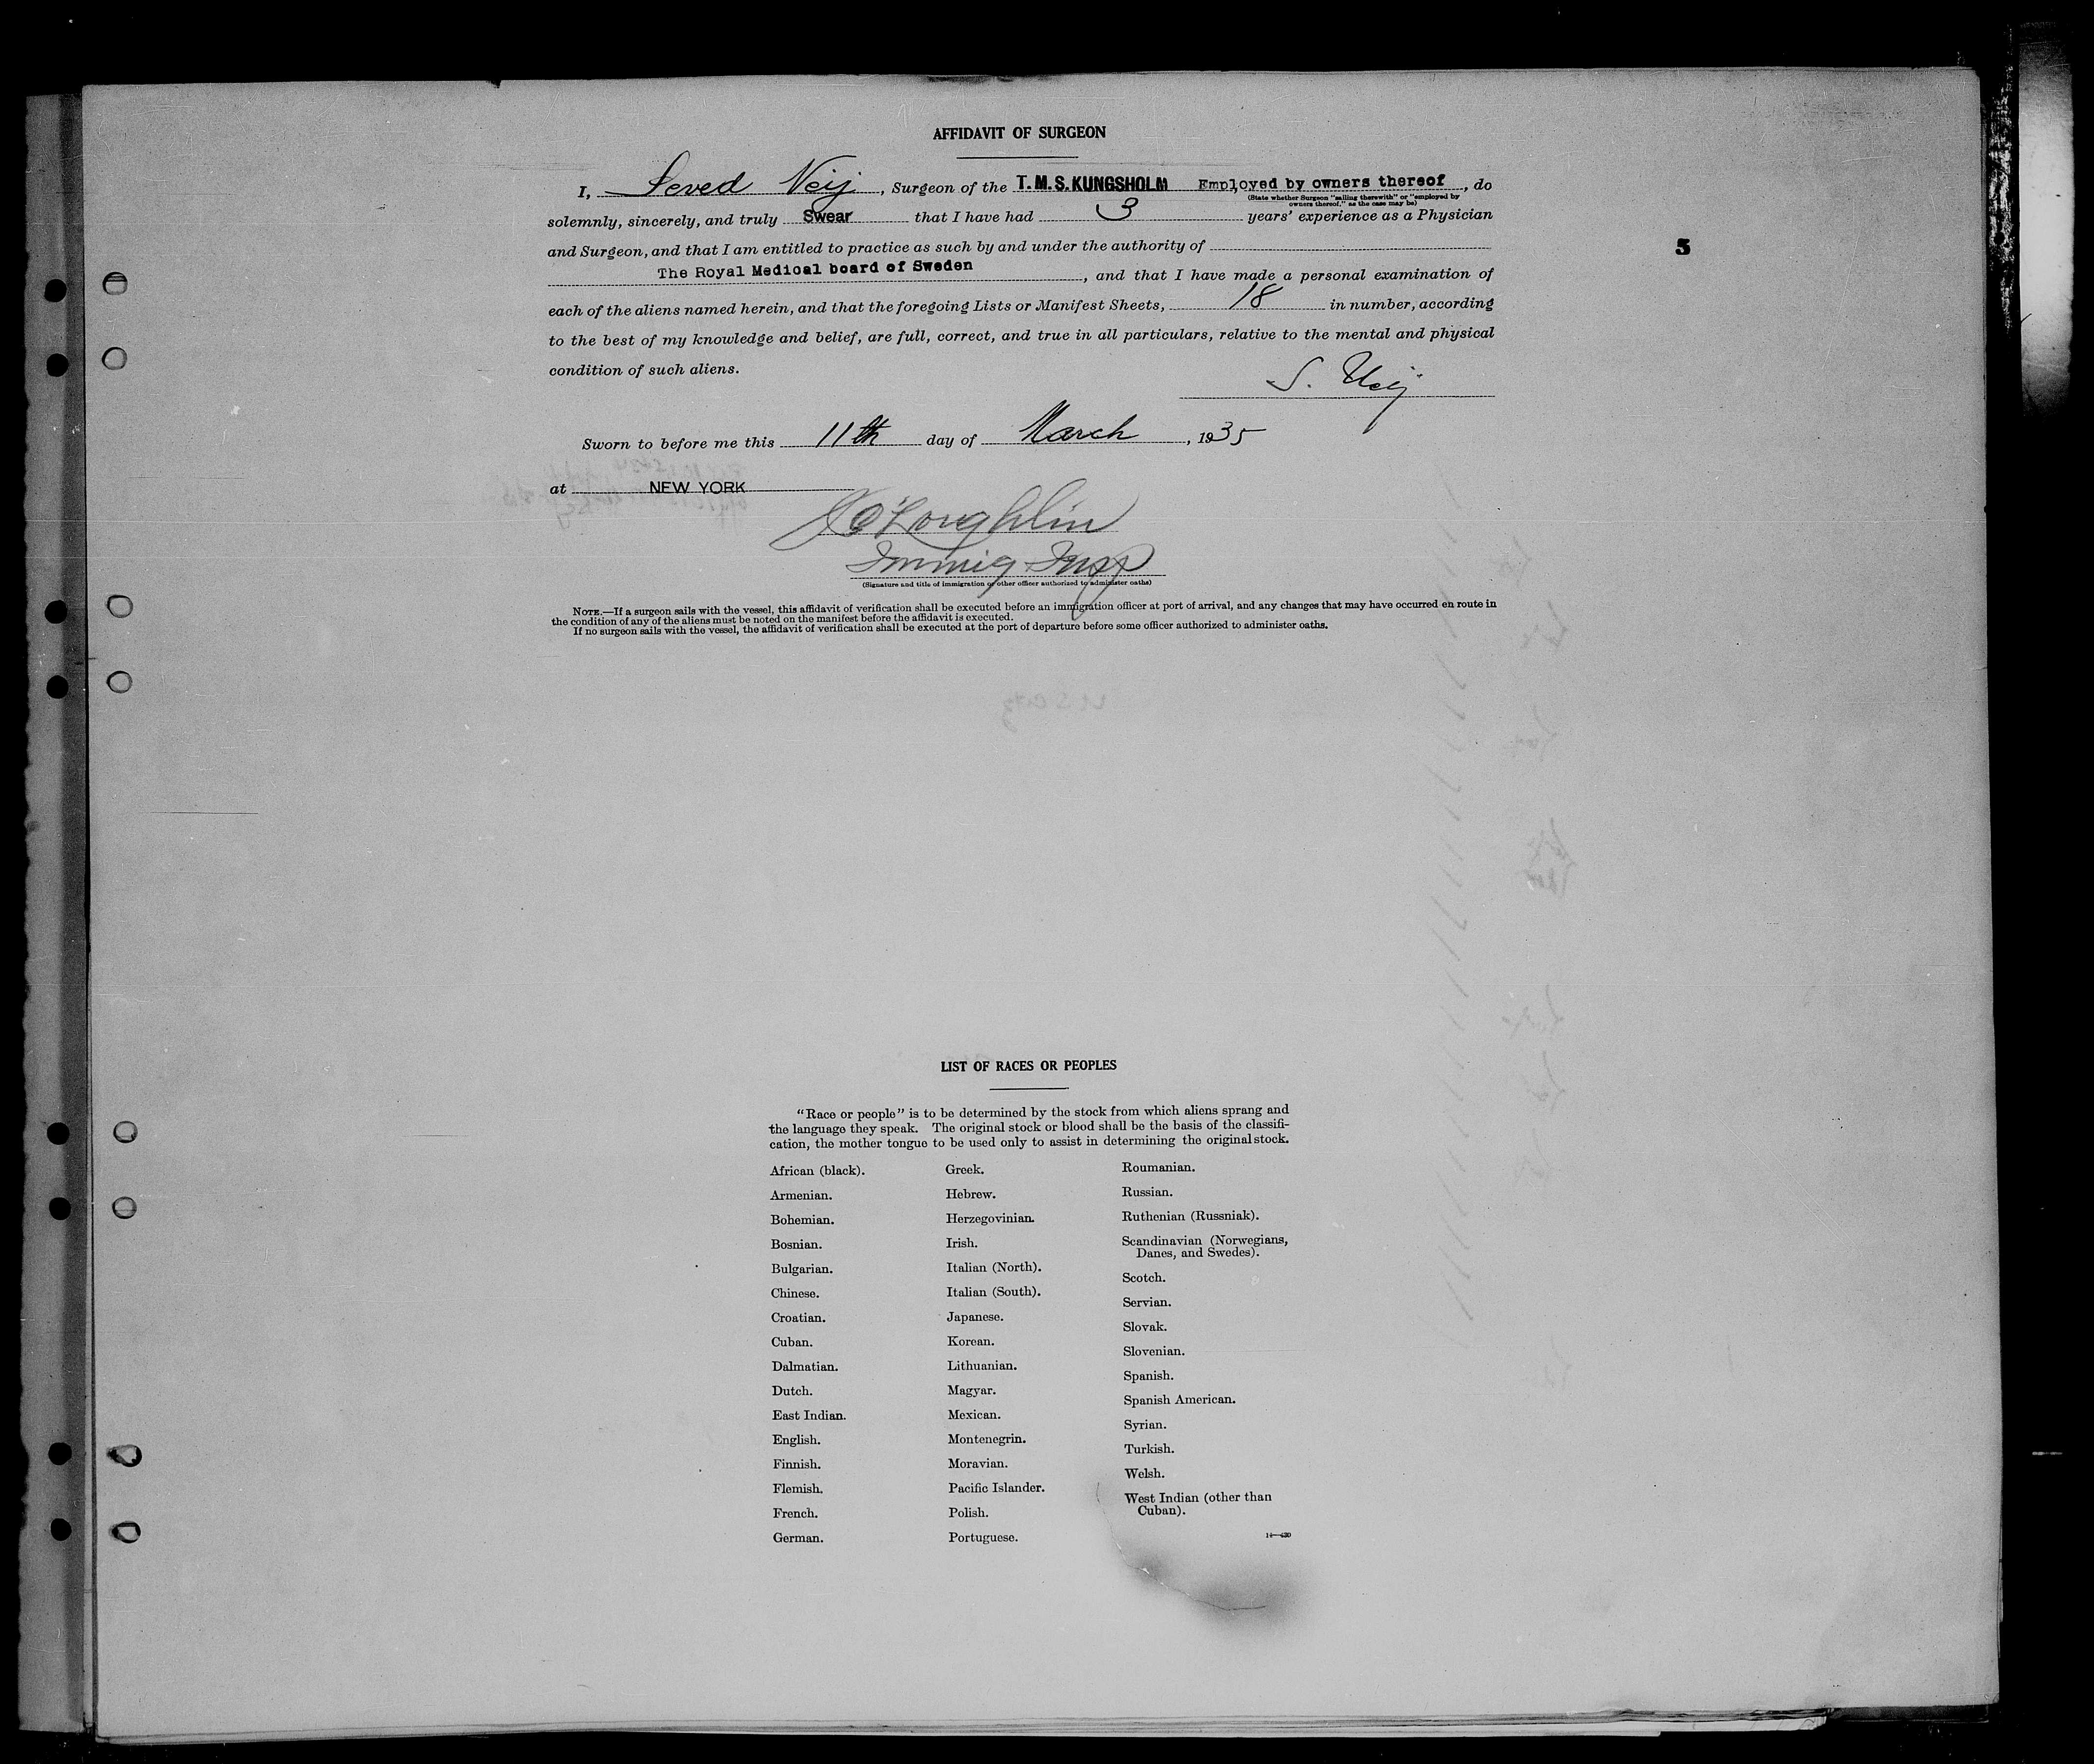 AFFIDAVIT OF SURGEON
I, Seved Neij, Surgeon of the T.M.S. KUNGSHOLM Employed by owners thereof, do
(State whether Surgeon "sailing therewith" or "employed by
owners thereof," as the case may be)
solemnly, sincerely, and truly Swear that I have had 3 years' experience as a Physician
and Surgeon, and that I am entitled to practice as such by and under the authority of
5
The Royal Medical board of Sweden, and that I have made a personal examination of
each of the aliens named herein, and that the foregoing Lists or Manifest Sheets, 18 in number, according
to the best of my knowledge and belief, are full, correct, and true in all particulars, relative to the mental and physical
condition of such aliens.
S. Neij
Sworn to before me this 11th day of March, 1935
at NEW YORK
O'Loughlin
Immig Insp
(Signature and title of immigration or other officer authorized to administer oaths)
NOTE.—If a surgeon sails with the vessel, this affidavit of verification shall be executed before an immigration officer at port of arrival, and any changes that may have occurred en route in
the condition of any of the aliens must be noted on the manifest before the affidavit is executed.
If no surgeon sails with the vessel, the affidavit of verification shall be executed at the port of departure before some officer authorized to administer oaths.
LIST OF RACES OR PEOPLES
"Race or people" is to be determined by the stock from which aliens sprang and
the language they speak. The original stock or blood shall be the basis of the classifi-
cation, the mother tongue to be used only to assist in determining the original stock.
African (black).
Armenian.
Bohemian.
Bosnian.
Bulgarian.
Chinese.
Croatian.
Cuban.
Dalmatian.
Dutch.
East Indian.
English.
Finnish.
Flemish.
French.
German.
Greek.
Hebrew.
Herzegovinian.
Irish.
Italian (North).
Italian (South).
Japanese.
Korean.
Lithuanian.
Magyar.
Mexican.
Montenegrin.
Moravian.
Pacific Islander.
Polish.
Portuguese.
Roumanian.
Russian.
Ruthenian (Russniak).
Scandinavian (Norwegians,
Danes, and Swedes).
Scotch.
Servian.
Slovak.
Slovenian.
Spanish.
Spanish American.
Syrian.
Turkish.
Welsh.
West Indian (other than
Cuban).